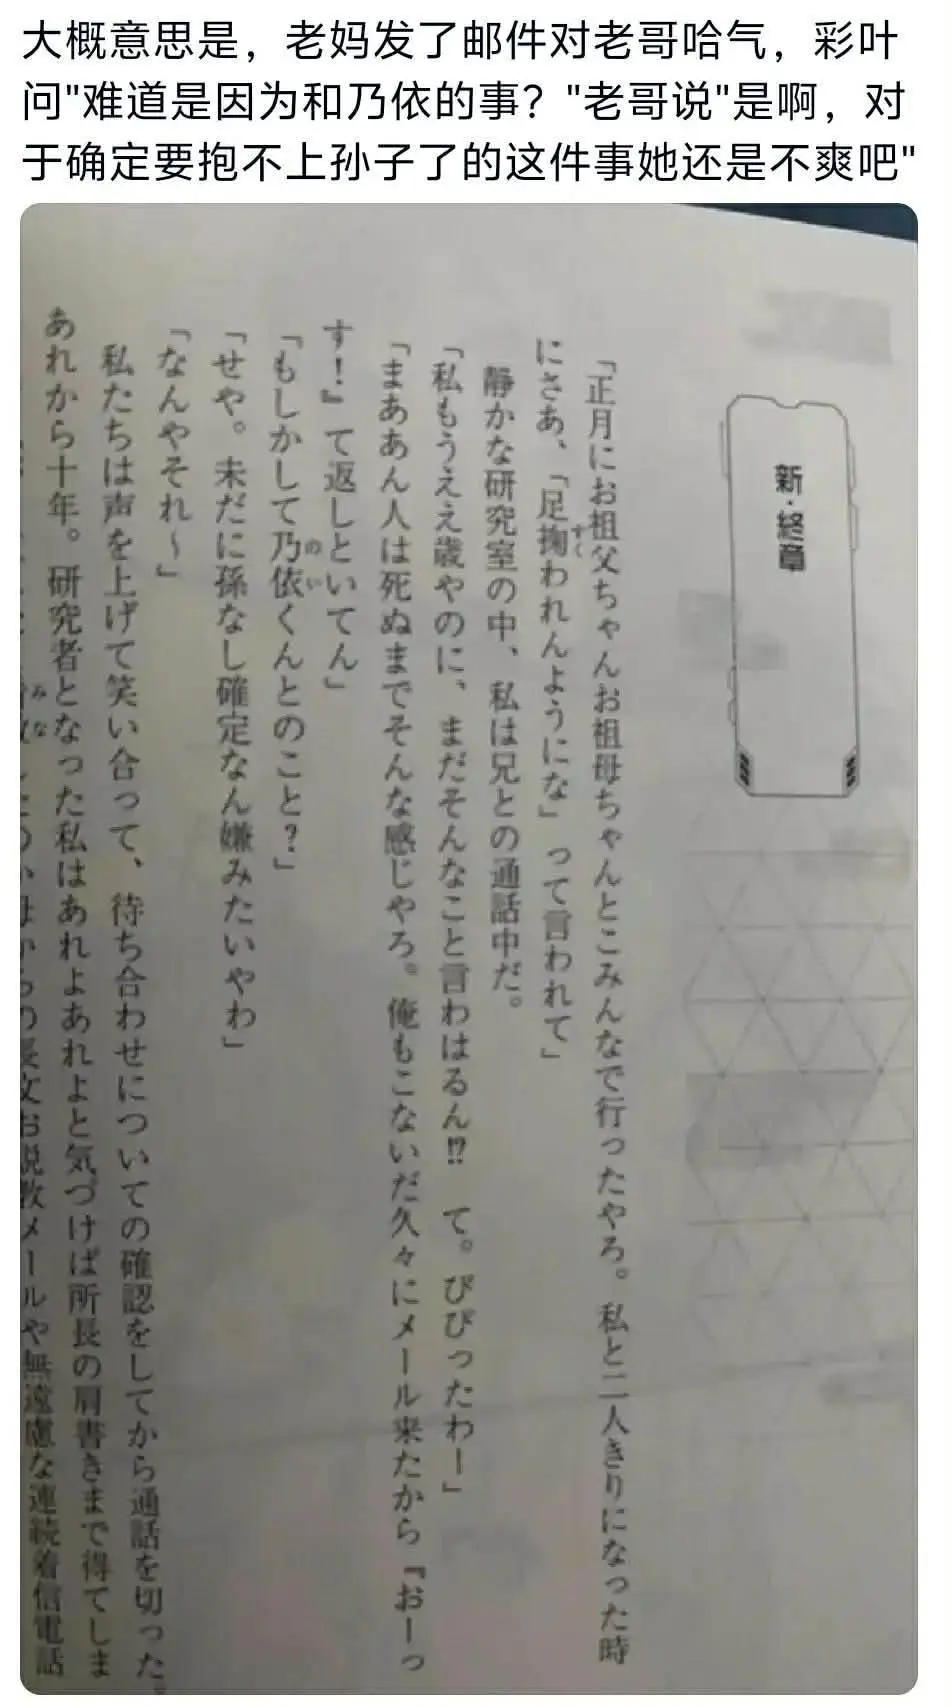 大概意思是，老妈发了邮件对老哥哈气，彩叶
问"难道是因为和乃依的事？"老哥说"是啊，对
于确定要抱不上孙子了的这件事她还是不爽吧"
新・終章
「正月にお祖父ちゃんお祖母ちゃんとこみんなで行ったやろ。私と二人きりになった時
にさあ、「足掬われんようにな」って言われて」
すく
静かな研究室の中、私は兄との通話中だ。
「私もうええ歳やのに、まだそんなこと言わはるん⁉　て。びびったわー」
「まああん人は死ぬまでそんな感じやろ。俺もこないだ久々にメール来たから『おーっ
す！』て返しといてん」
「もしかして乃依くんとのこと？」
のい
「せや。未だに孫なし確定なん嫌みたいやわ」
「なんやそれ～」
私たちは声を上げて笑い合って、待ち合わせについての確認をしてから通話を切った。
あれから十年。研究者となった私はあれよあれよと気づけば所長の肩書きまで得てしま
みな
母からの長文お説教メールや無遠慮な連続着信電話